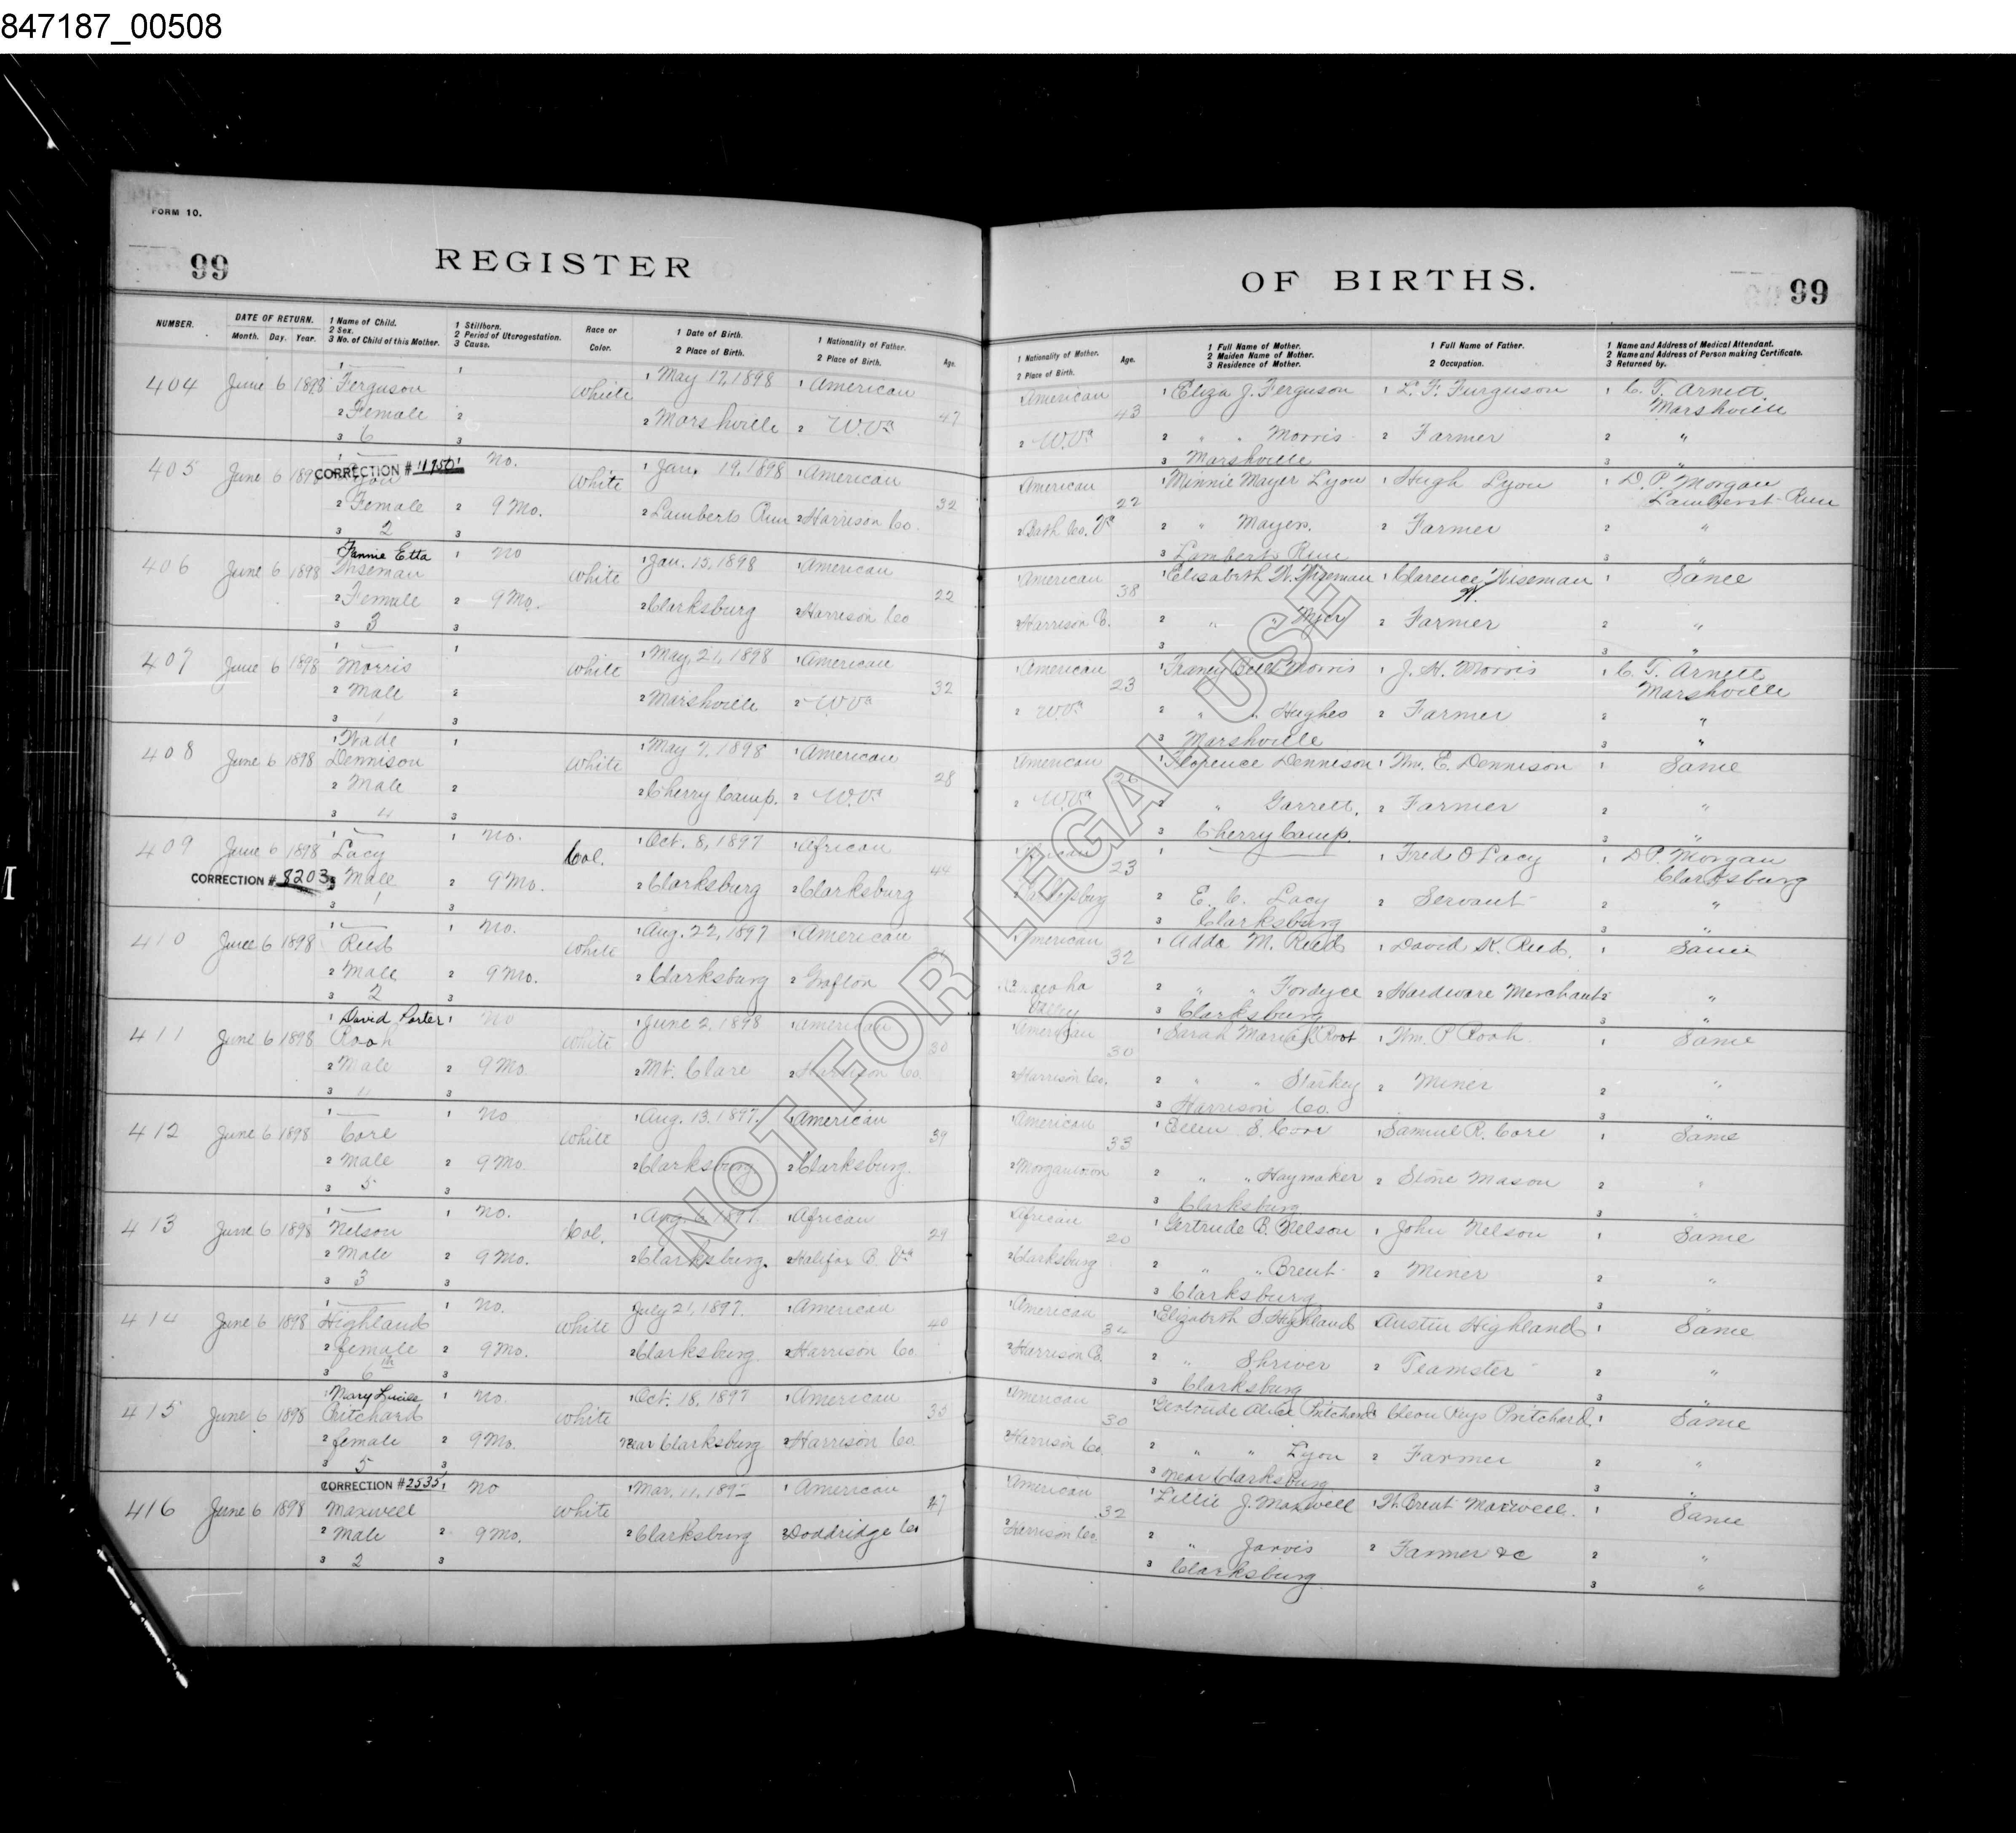 847187_00508
FORM 10.
99 REGISTER OF BIRTHS. 99
NUMBER. DATE OF RETURN. Month. Day. Year. 1 Name of Child. 2 Sex. 3 No. of Child of this Mother. 1 Stillborn. 2 Period of Uterogestation. 3 Cause. Race or Color. 1 Date of Birth. 2 Place of Birth. 1 Nationality of Father. 2 Place of Birth. Age. 1 Nationality of Mother. 2 Place of Birth. Age. 1 Full Name of Mother. 2 Maiden Name of Mother. 3 Residence of Mother. 1 Full Name of Father. 2 Occupation. 1 Name and Address of Medical Attendant. 2 Name and Address of Person making Certificate. 3 Returned by.
404 June 6 1898 1 — Ferguson 1 White 1 May 17, 1898 1 American 47 1 American 43 1 Eliza J. Ferguson 1 L. F. Furguson 1 C. T. Arnett Marshville
2 Female 2 2 Marshville 2 W. Va 2 W. Va 2 " " Morris 2 Farmer 2 "
3 6 3 3 Marshville 3 "
405 June 6 1898 1 — CORRECTION # Lyon 1 No. White 1 Jan. 19, 1898 1 American 32 American 22 1 Minnie Mayer Lyon 1 Hugh Lyon 1 D. P. Morgan Lambert Run
2 Female 2 9 Mo. 2 Lamberts Run 2 Harrison Co. 2 Bath Co. Va 2 " Mayers. 2 Farmer 2 "
3 2 3 3 Lamberts Run 3 "
406 June 6 1898 Fannie Etta Wiseman 1 No White 1 Jan. 15, 1898 1 American 22 American 38 1 Elizabeth W. Wiseman 1 Clarence W. Wiseman 1 Same
2 Female 2 9 Mo. 2 Clarksburg 2 Harrison Co 2 Harrison C. 2 " " 2 Farmer 2 "
3 3 3 3 3 "
407 June 6 1898 1 — Morris 1 White 1 May, 21, 1898 1 American 32 1 American 23 1 Morris 1 J. H. Morris 1 C. T. Arnett Marshville
2 Male 2 2 Marshville 2 W. Va 2 W. Va 2 " " Hughes 2 Farmer 2 "
3 1 3 3 Marshville 3 "
408 June 6 1898 1 Wade Dennison 1 White 1 May 7, 1898 1 American 28 American 26 1 Florence Dennison 1 Wm. E. Dennison 1 Same
2 Male 2 2 Cherry Camp. 2 W. Va 2 W. Va 2 " Garrett. 2 Farmer 2 "
3 4 3 3 Cherry Camp. 3 "
409 June 6 1898 1 — Lacy 1 No. Col. 1 Oct. 8, 1897 1 African 44 1 African 23 1 — 1 Fred O Lacy 1 D. P. Morgan Clarksburg
CORRECTION # 8203 2 Male 2 9 Mo. 2 Clarksburg 2 Clarksburg 2 E. C. Lacy 2 Servant 2 "
3 1 3 3 Clarksburg 3 "
410 June 6 1898 1 — Reed 1 No. White 1 Aug. 22, 1897 1 American 1 American 32 1 Adda M. Reed 1 David K. Reed. 1 Same
2 Male 2 9 Mo. 2 Clarksburg 2 Grafton 2 Valley 2 " " Fordyce 2 Hardware Merchant 2 "
3 2 3 3 Clarksburg 3 "
411 June 6 1898 1 David Porter Rooh 1 No White 1 June 2, 1898 1 American 30 American 30 1 Sarah Root 1 Wm. P Rooh 1 Same
2 Male 2 9 Mo. 2 Mt. Clare 2 Harrison Co. 2 Harrison Co. 2 " " Starkey 2 Miner 2 "
3 4 3 3 Harrison Co. 3 "
412 June 6 1898 1 — Core 1 No White 1 Aug. 13. 1897. 1 American 39 American 33 1 Ellen S. Core 1 Samuel R. Core 1 Same
2 Male 2 9 Mo. 2 Clarksburg 2 Clarksburg. 2 Morgantown 2 " " Haymaker 2 Stone Mason 2 "
3 5 3 3 Clarksburg 3 "
413 June 6 1898 1 — Nelson 1 No. Col. 1 Aug. 6, 1897. 1 African 29 African 20 1 Gertrude B. Nelson 1 John Nelson 1 Same
2 Male 2 9 Mo. 2 Clarksburg. 2 Halifax C. Va 2 Clarksburg 2 " " Brent 2 Miner 2 "
3 3 3 3 Clarksburg 3 "
414 June 6 1898 1 — Highland 1 No. White July 21, 1897. 1 American 40 American 1 Elizabeth S Highland Austin Highland 1 Same
2 female 2 9 Mo. 2 Clarksburg 2 Harrison Co 2 Harrison C. 2 " Shriver 2 Teamster 2 "
3 6th 3 3 Clarksburg 3 "
415 June 6 1898 1 Mary Lucile Pritchard 1 No. White 1 Oct. 18, 1897 1 American 35 American 30 Gertrude Alice Pritchard Cleon Pritchard. 1 Same
2 female 2 9 Mo. near Clarksburg 2 Harrison Co. 2 Harrison Co. 2 " " Lyon 2 Farmer 2 "
3 5 3 3 Near Clarksburg 3 "
416 June 6 1898 CORRECTION # 2535 Maxwell 1 No White 1 Mar. 11, 1 American 47 American 32 1 Lillie J. Maxwell 1 Brent Maxwell. 1 Same
2 Male 2 9 Mo. 2 Clarksburg 2 Doddridge Co 2 Harrison Co. 2 " Jarvis 2 Farmer &c 2 "
3 2 3 3 Clarksburg 3 "
NOT FOR LEGAL USE